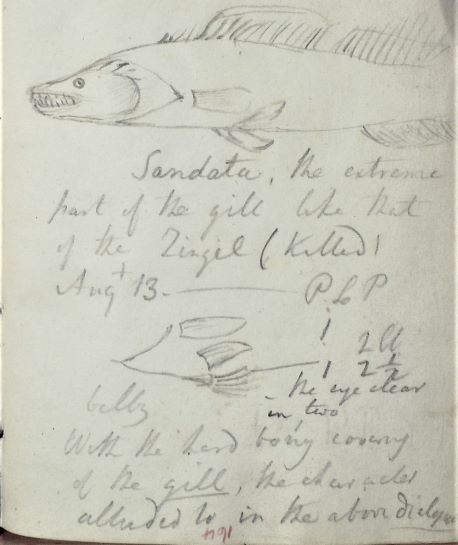 Sandata, the extreme
part of the gill like that
of the Zingel (Killed)
Augt 13. P L P
1 2
1 2 1/2
the eye clear
in two
belly
With the hard bony covering
of the gill, the character
alluded to in the above dialogue
164